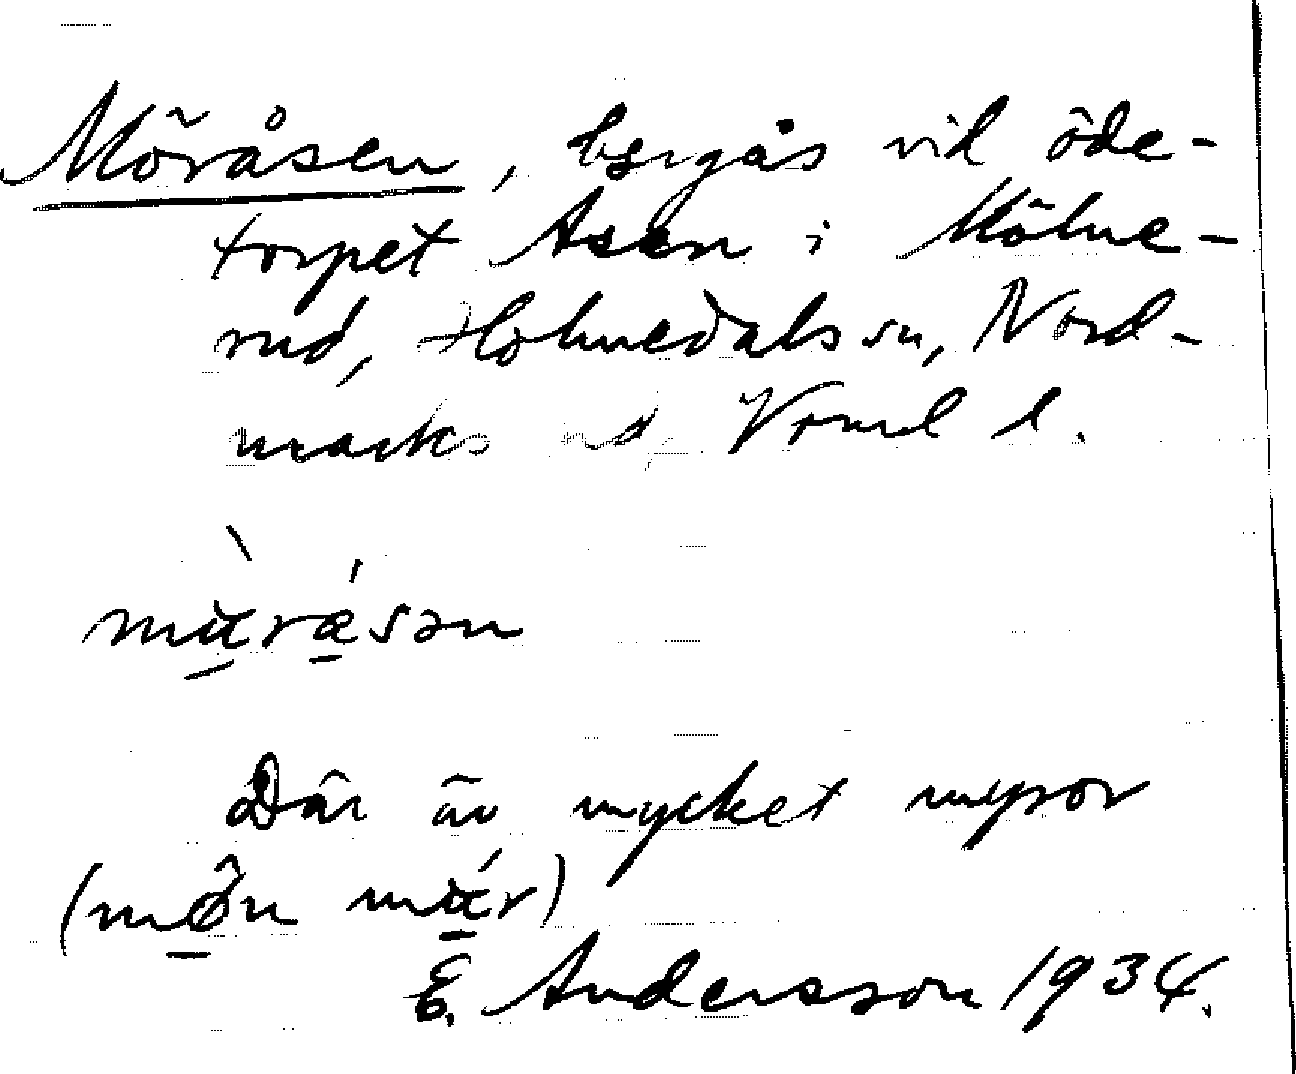 Möråsen, bergås vid öde-
torpet Åsen i Mölne-
rud, Holmedals sn, Nord-
marks hd, Vrml l.
Där är mycket myror
E. Andersson 1934.